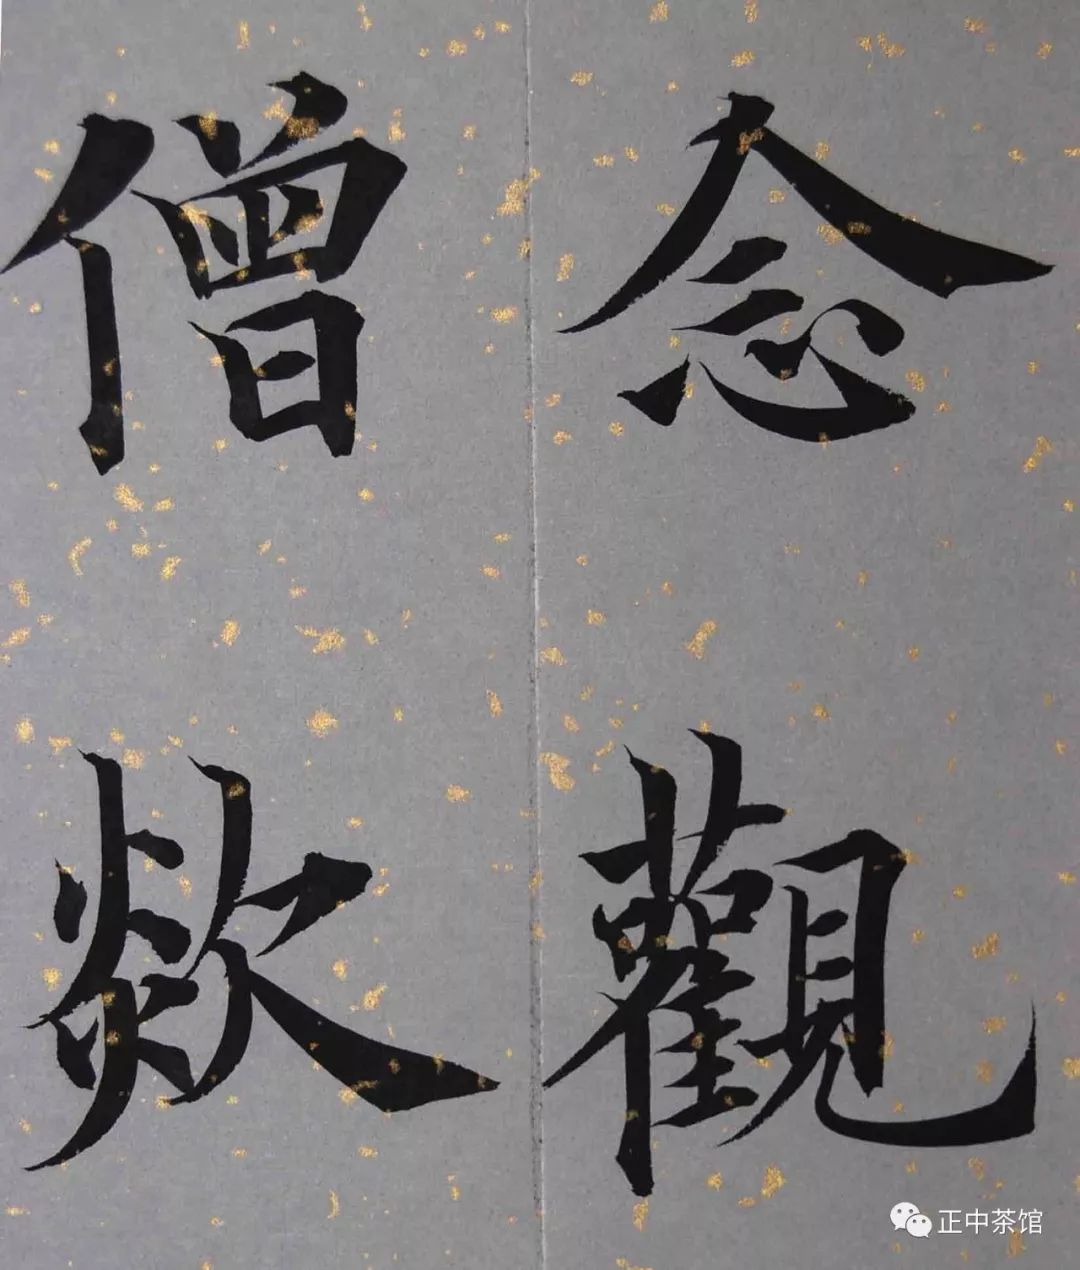 念觀
僧欻
正中茶馆